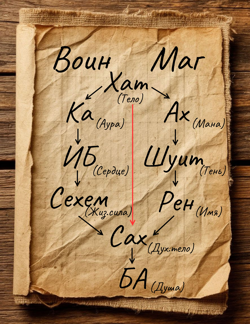 Воин Маг
Хат
(Тело)
Ка (Аура) Ах (Мана)
ИБ (Сердце) Шуит (Тень)
Сехем (Жиз.сила) Рен (Имя)
Сах (Дух.тело)
БА (Душа)